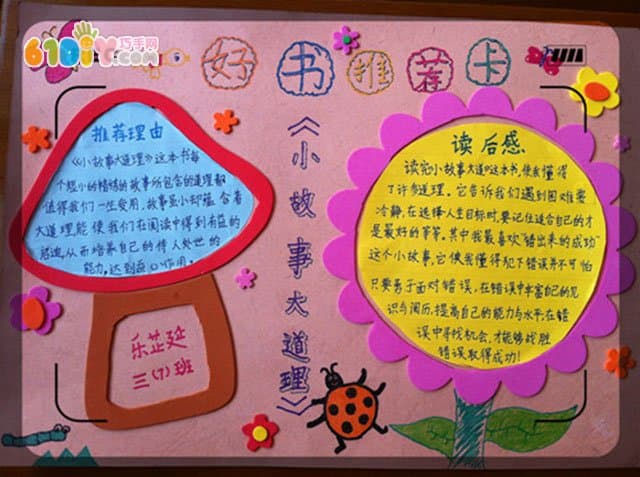 610DIY巧手网
.com
好书推荐卡
《小故事大道理》
推荐理由
《小故事大道理》这本书每
个短小的精悍的故事所包含的道理都
值得我们一生受用,故事虽小却蕴含着
大道理能使我们在阅读中得到有益的
启迪,从而培养自己的待人处世的
能力,达到
作用。
乐芷延
三(7)班
读后感
读完小故事大道理这本书,使我懂得
了许多道理。它告诉我们遇到困难要
冷静,在选择人生目标时,要记住适合自己的才
是最好的等等。其中我最喜欢"错出来的成功"
这个小故事,它使我懂得犯下错误并不可怕
只要勇于面对错误,在错误中丰富自己的见
识与阅历,提高自己的能力与水平在错
误中寻找机会,才能够战胜
错误取得成功!